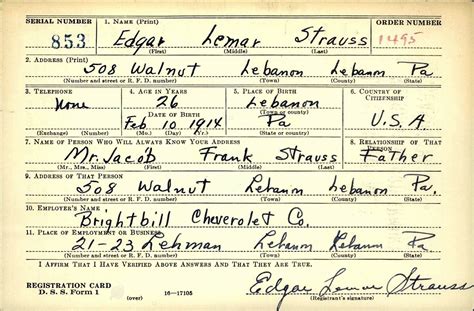 SERIAL NUMBER 1. NAME (Print) ORDER NUMBER
853 Edgar Lemar Strauss 1495
(First) (Middle) (Last)
2. ADDRESS (Print)
508 Walnut Lebanon Lebanon Pa
(Number and street or R. F. D. number) (Town) (County) (State)
3. TELEPHONE 4. AGE IN YEARS 5. PLACE OF BIRTH 6. COUNTRY OF CITIZENSHIP
None 26 Lebanon
DATE OF BIRTH (Town or county)
Feb 10, 1914 Pa U.S.A.
(Exchange) (Number) (Mo.) (Day) (Yr.) (State or country)
7. NAME OF PERSON WHO WILL ALWAYS KNOW YOUR ADDRESS 8. RELATIONSHIP OF THAT PERSON
Mr. Jacob Frank Strauss Father
(Mr., Mrs., Miss) (First) (Middle) (Last)
9. ADDRESS OF THAT PERSON
508 Walnut Lebanon Lebanon Pa.
(Number and street or R. F. D. number) (Town) (County) (State)
10. EMPLOYER'S NAME
Brightbill Cheverolet Co.
11. PLACE OF EMPLOYMENT OR BUSINESS
21-23 Lehman Lebanon Lebanon Pa
(Number and street or R. F. D. number) (Town) (County) (State)
I AFFIRM THAT I HAVE VERIFIED ABOVE ANSWERS AND THAT THEY ARE TRUE.
REGISTRATION CARD Edgar Lemar Strauss
D. S. S. Form 1 (over) 16—17105 (Registrant's signature)